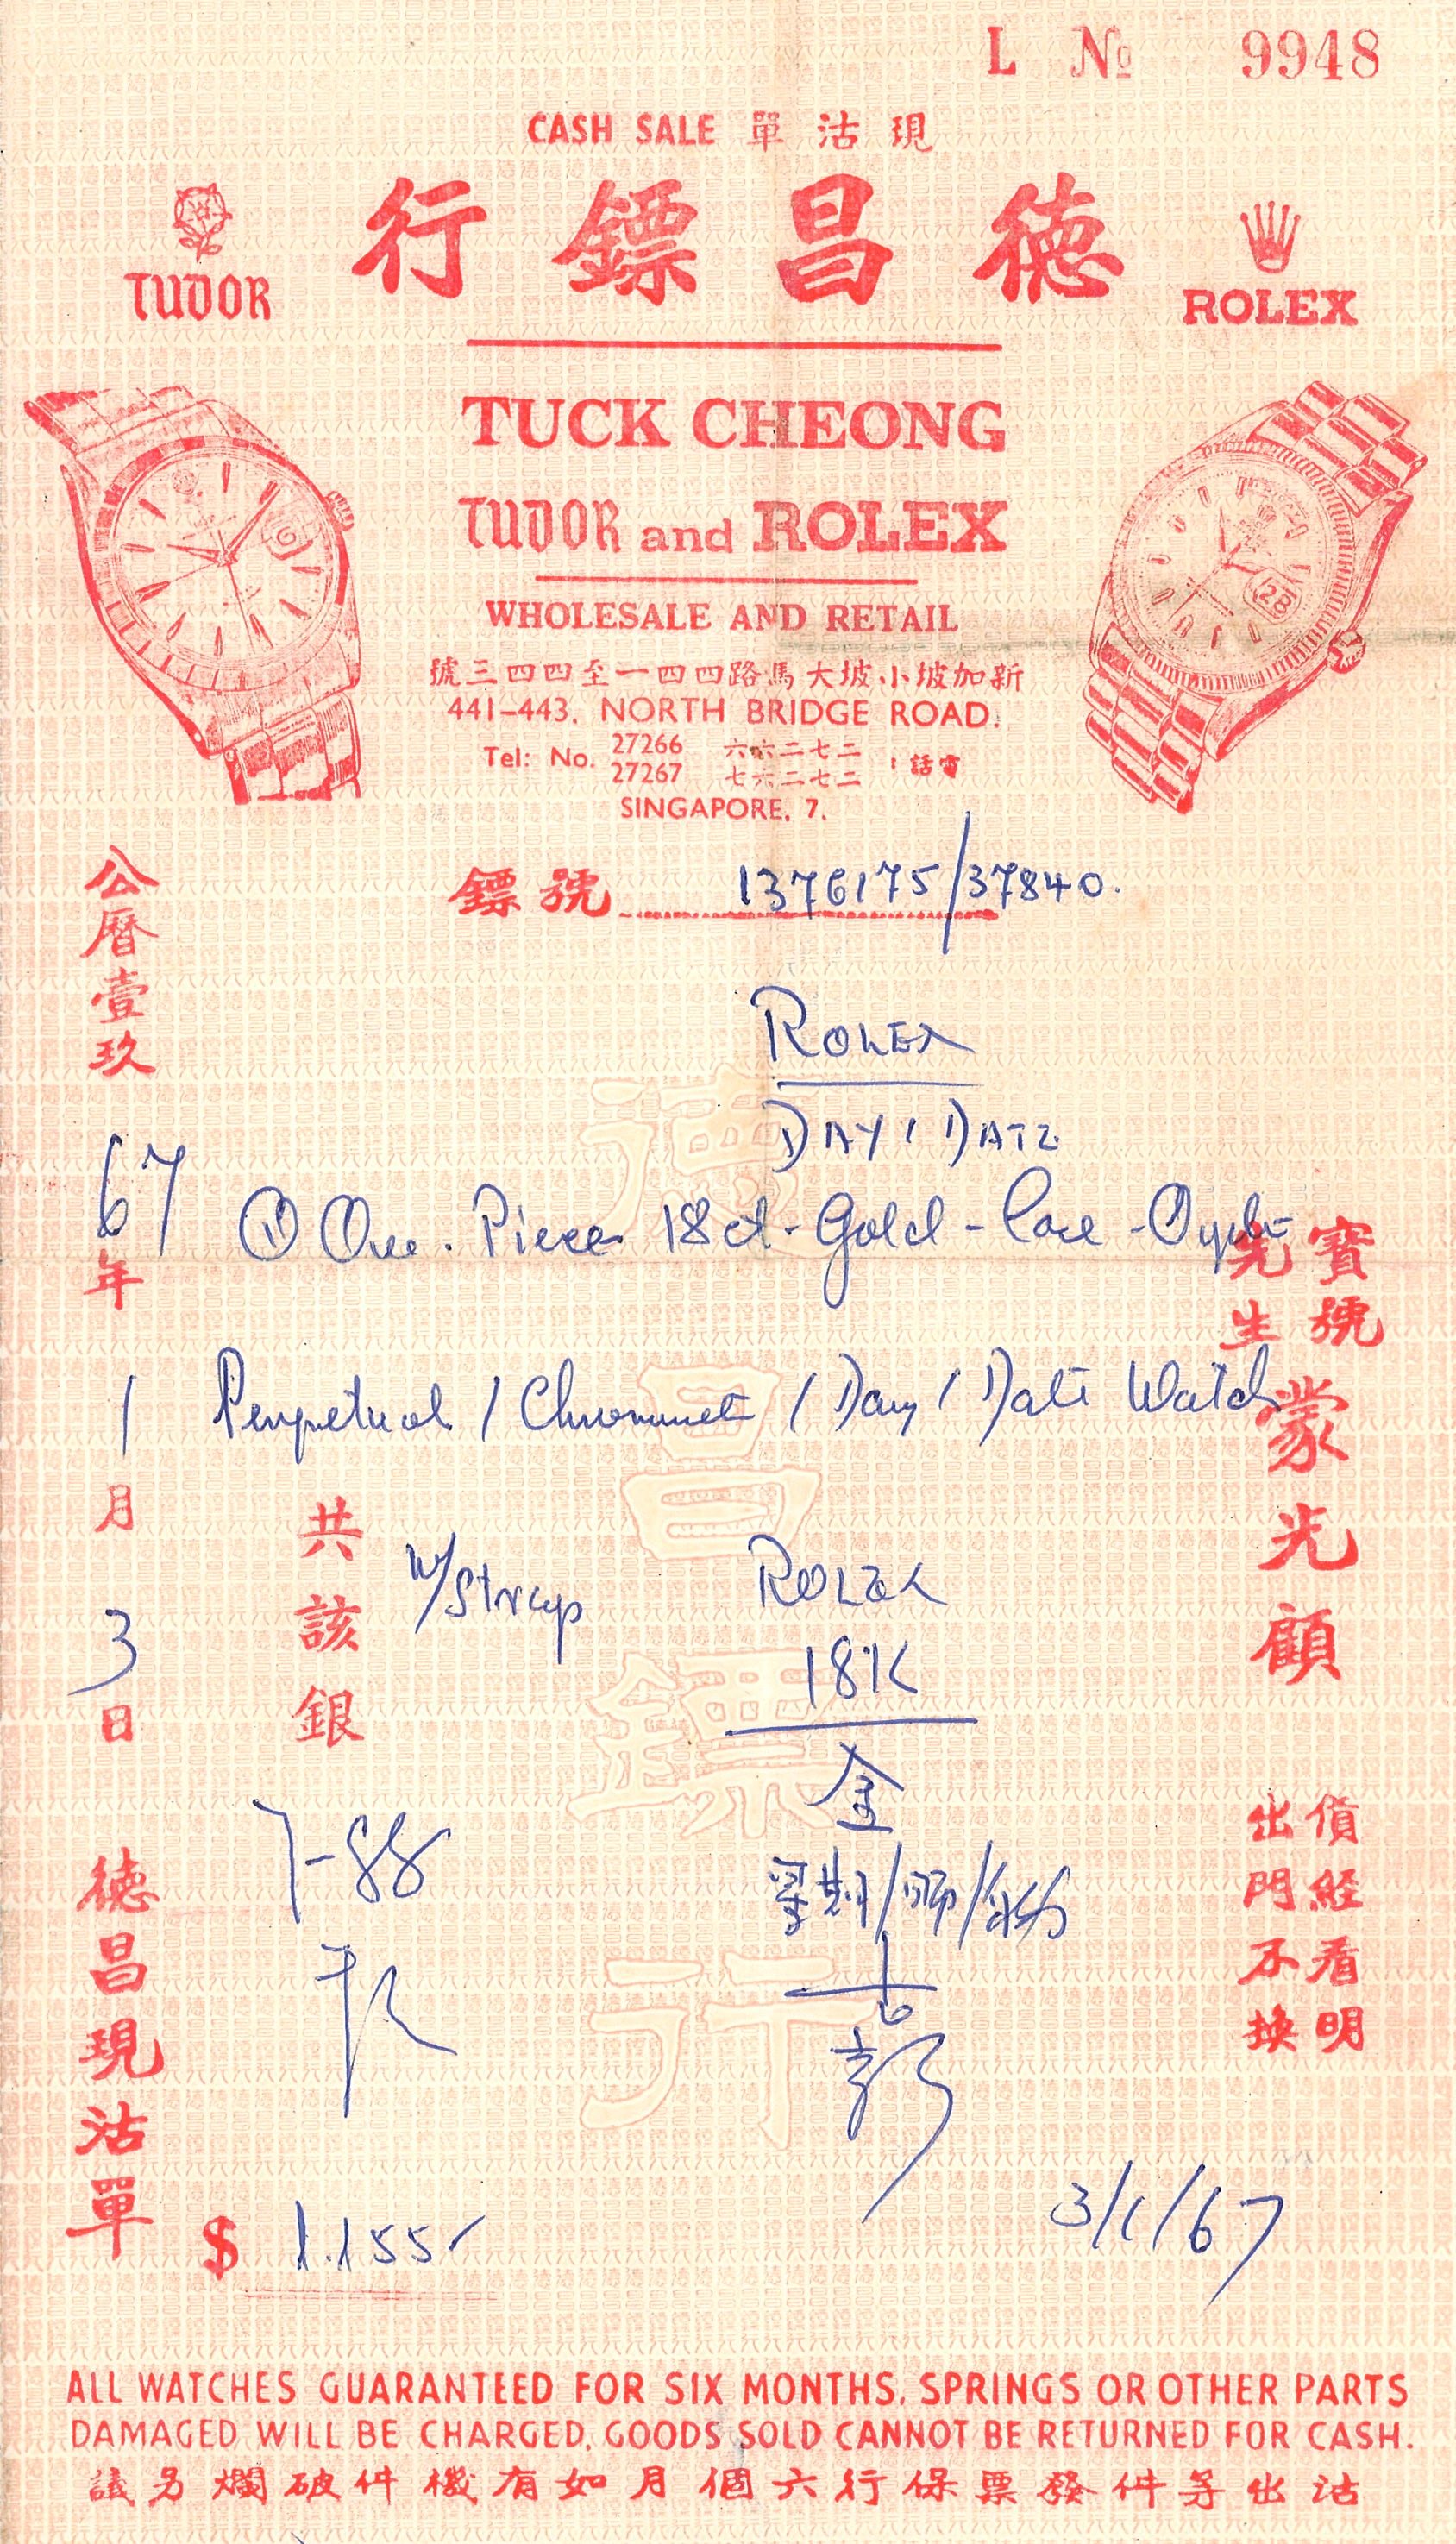 L № 9948
CASH SALE 單沽現
行鏢昌德
TUDOR
ROLEX
TUCK CHEONG
TUDOR and ROLEX
WHOLESALE AND RETAIL
號三四四至一四四路馬大坡小坡加新
441-443, NORTH BRIDGE ROAD.
Tel: No. 27266 六六二七二
27267 七六二七二
話電
SINGAPORE, 7.
鏢號 1376175/37840.
公曆壹玖
67
年
1
月
3
日
ROLEX
DAY/DATE
① One. Piece 18ct-Gold-Case-Oyster
Perpetual / Chronomet / Day / Date Watch
寶號
先生
蒙光顧
共該銀
W/Strap
ROLEX
18K
金
星期/
貨經看明
出門不換
德昌現沽單
3/1/67
$ 1.155
ALL WATCHES GUARANTEED FOR SIX MONTHS. SPRINGS OR OTHER PARTS
DAMAGED WILL BE CHARGED. GOODS SOLD CANNOT BE RETURNED FOR CASH.
議另爛破件機有如月個六行保票發件等出沽
德昌鏢行